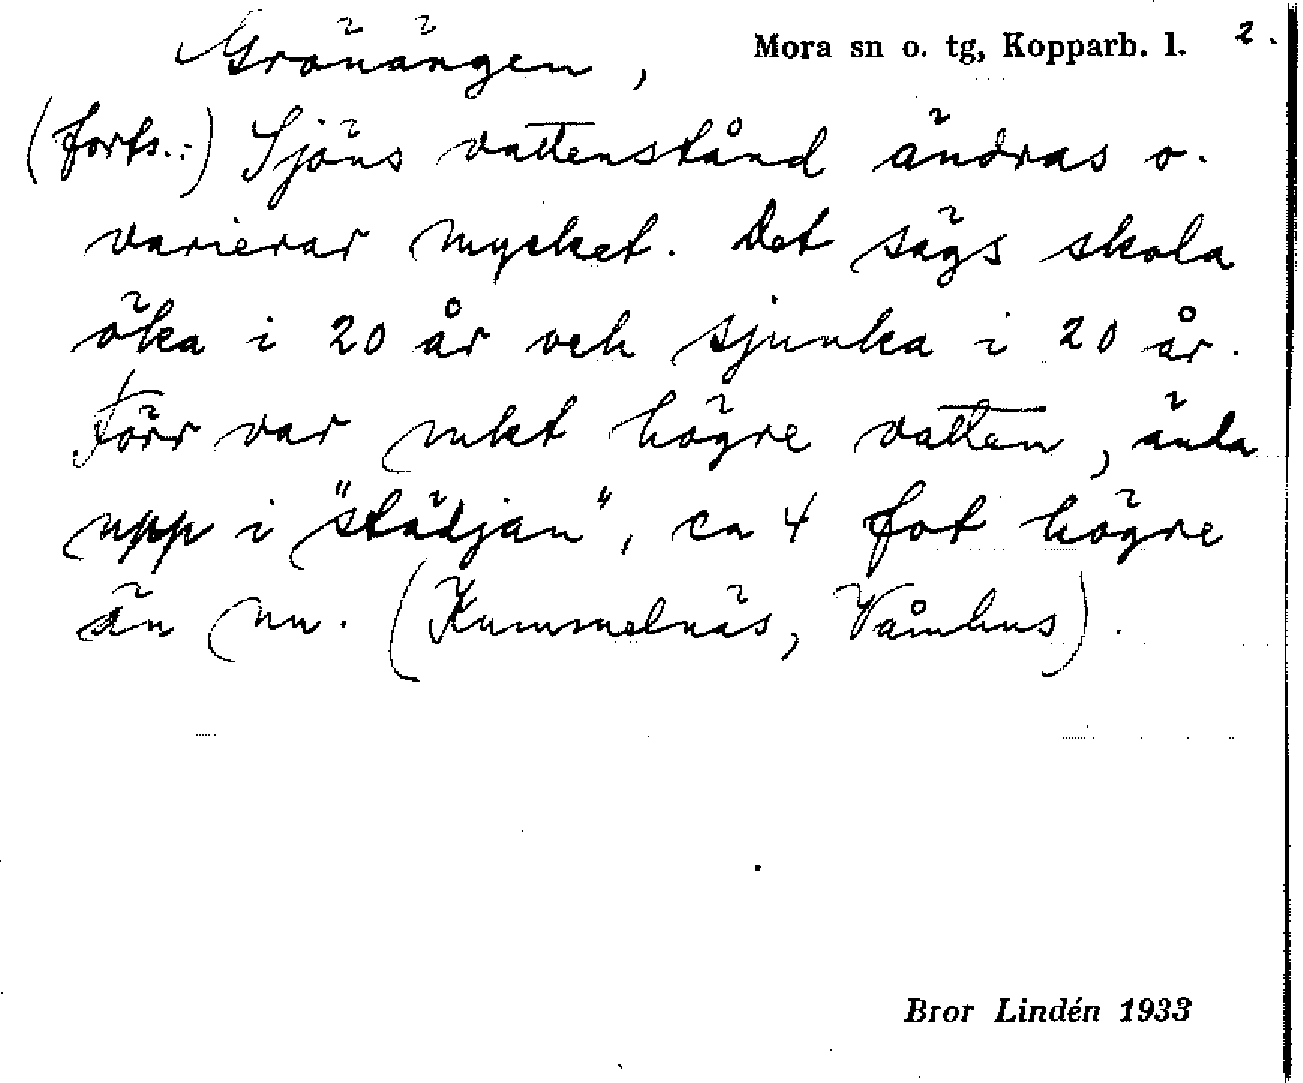 Grönängen, Mora sn o. tg, Kopparb. l. 2.
(forts.:) Sjöns vattenstånd ändras o.
varierar mycket. Det sägs skola
öka i 20 år och sjunka i 20 år.
Förr var mkt högre vatten, ända
upp i "städjan", ca 4 fot högre
än nu. (Kummelnäs, Våmhus).
Bror Lindén 1933